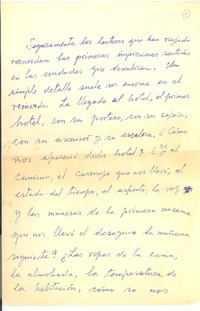 Seguramente los lectores que han viajado
recuerdan las primeras impresiones sentidas
en las ciudades que descubrían. Un
simple detalle suele ser enorme en el
recuerdo. La llegada al hotel, el primer
hotel, con su portero, con su cajón,
con su ascensor y su escalera, ¿Cómo
nos apareció dicho hotel? ¿Y el
camino, el carruaje que nos llevó, el
estado del tiempo, el aspecto, la voz
y las maneras de la primera mucama
que nos llevó el desayuno la mañana
siguiente? ¿Las ropas de la cama,
la almohada, la temperatura de
la habitación, cómo se nos